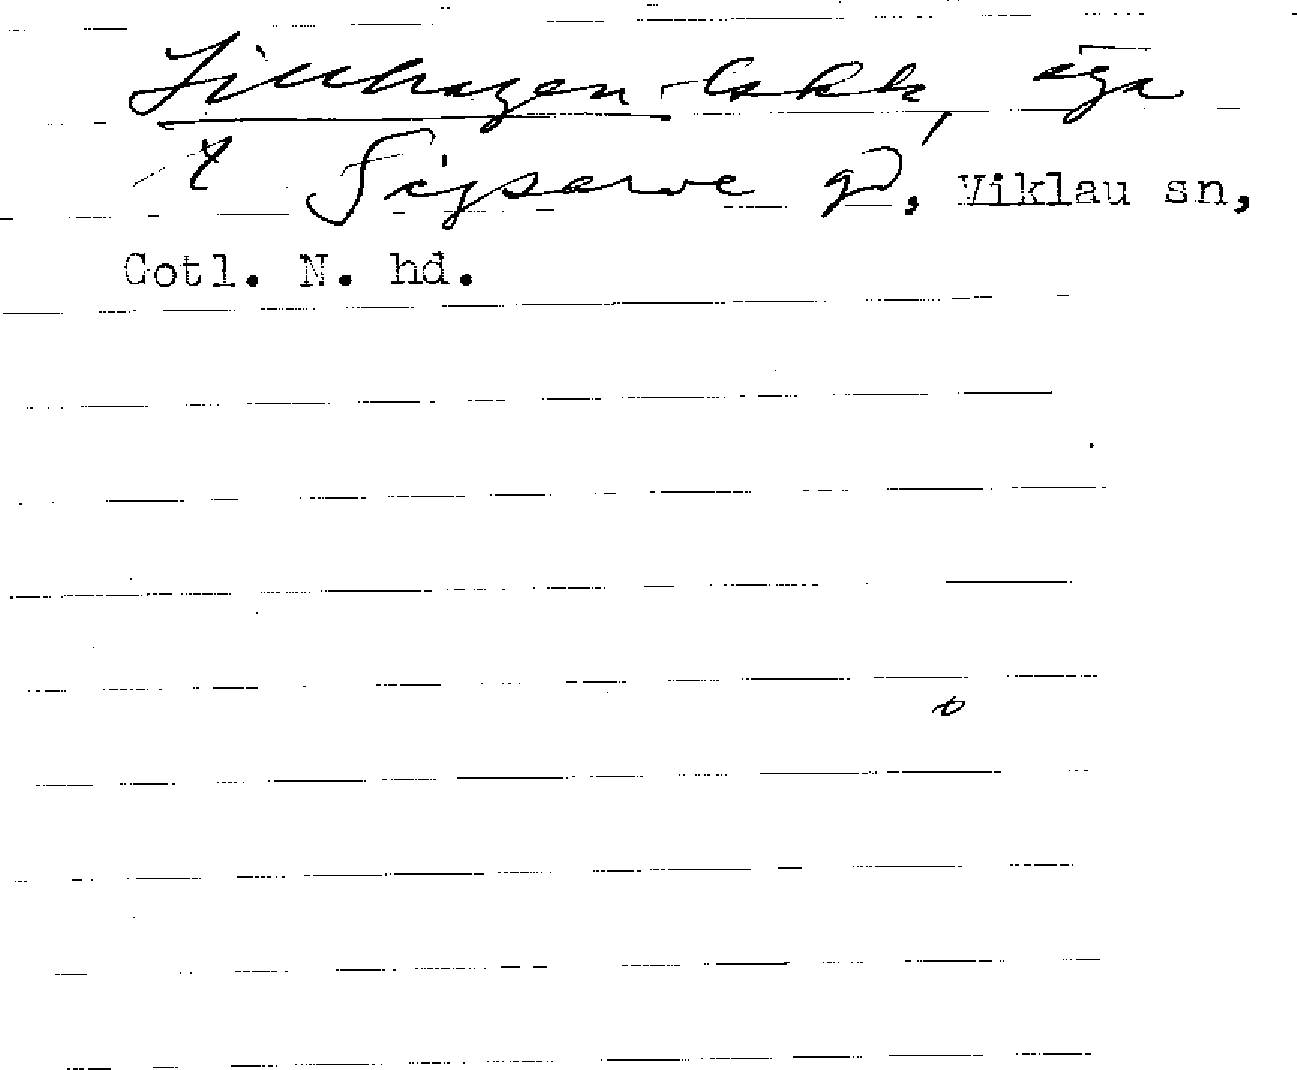 Lillhagen-bakk, äga
t Sigsarve gd, Viklau sn,
Gotl. N. hd.